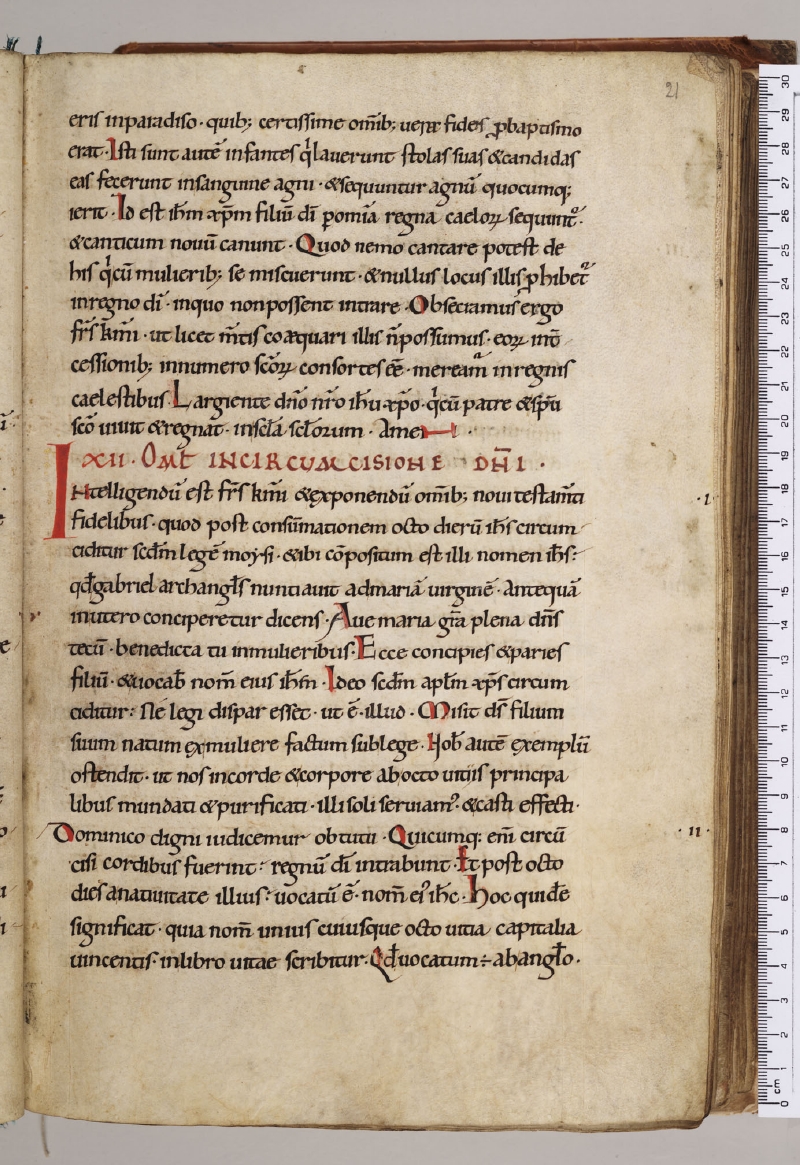 21
eris inparadiso · quib; certissime om̅ib; uerae fidei ꝓbaptismo
erat · Isti sunt autē infantes q̍ lauerunt stolas suas &candidas
eas fecerunt insanguine agni · &sequuntur agnū quocumq;
ierit · Id est ih̅m xp̅m filiū dī ꝑomīa regna caeloꝝ sequunt᷑ ·
&canticum nouū canunt · Quod nemo cantare potest de
his q̍cū mulierib; se miscuerunt · &nullus locus illis ꝓhibet᷑
inregno dī · inquo nonpossent intrare · Obsecramus ergo
fr̅s km̅i · ut licet m̅itis coaequari illis n̅possumus · eoꝝ int̅
cessionib; innumero sc̅oꝝ consortes ēē · meream᷑ inregnis
caelestibus · Largiente dn̅o nr̅o ih̅u xp̅o · q̍cū patre &sp̅u
sc̅o uiuit &regnat · insc̅la sc̅lorum · Amen ·
XII · OML̅ INCIRCUMCISIONE DN̅I ·
Intelligendū est fr̅s km̅i &exponendū om̅ib; noui testam̅ti
· I ·
fidelibus · quod post consūmationem octo dierū ih̅s circum
ciditur scd̅m legē moysi · &ibi cōpositum est illi nomen ih̅s :
qd̅ gabriel archangl̅s nuntiauit admariā uirginē · Antequā
inutero conciperetur dicens · Aue maria gr̅a plena dn̅s
tecū · benedicta tu inmulieribus · Ecce concipies &paries
filiū · &uocab̅ nom̅ eius ih̅m · Ideo scd̅m apl̅m xp̅s circum
ciditur : Ne legi dispar esset · ut ē · illud · Misit ds̅ filium
suum natum exmuliere factum sublege · Nob̅ autē exemplū
ostendit · ut nos incorde &corpore abocto uitiis principa
libus mundati &purificati · illi soli seruiam᷑ · &casti effecti ·
Dominico digni iudicemur obtutu · Quicumq; em̅ circū
· II ·
cisi cordibus fuerint : regnū dī intrabunt · Et post octo
dies anatiuitate illius : uocatū ē · nom̅ ei᷒ ih̅c · Hoc quidē
significat · quia nom̅ unius cuiusque octo uitia capitalia
uincentis · inlibro uitae scribitur · Qd̅ uocatum ÷ abangl̅o ·